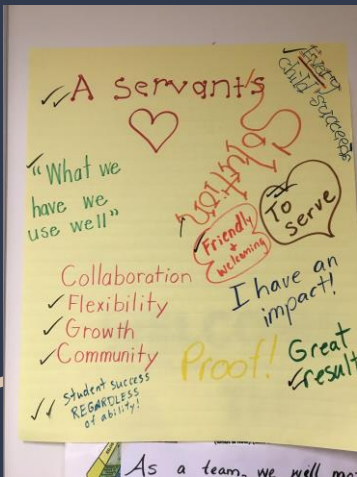 A servant's
Every
child succeeds
"What we
have we
use well"
Solution
Friendly
+
welcoming
To
serve
Collaboration
Flexibility
Growth
Community
I have an
impact!
Proof!
Great
result
Student success
REGARDLESS
of ability!
As a team, we will